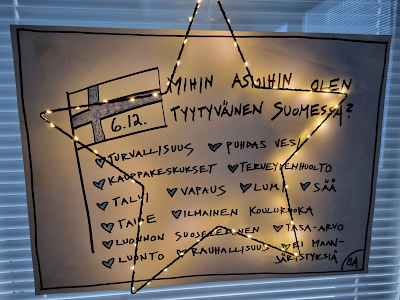 MIHIN ASIOIHIN OLEN
TYYTYVÄINEN SUOMESSA?
6.12.
TURVALLISUUS PUHDAS VESI
KAUPPAKESKUKSET TERVEYDENHUOLTO
TALVI VAPAUS LUMI SÄÄ
TAIDE ILMAINEN KOULURUOKA
LUONNON SUOJELEMINEN TASA-ARVO
LUONTO RAUHALLISUUS EI MAAN-
JÄRISTYKSIÄ
8A